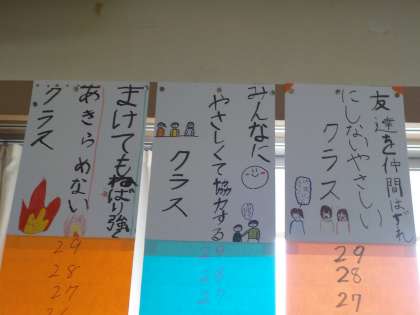 友達を仲間はずれ
にしないやさしい
クラス
みんなに
やさしくて協力する
クラス
まけてもねばり強く
あきらめない
クラス
29
28
27
29
28
27
29
28
27